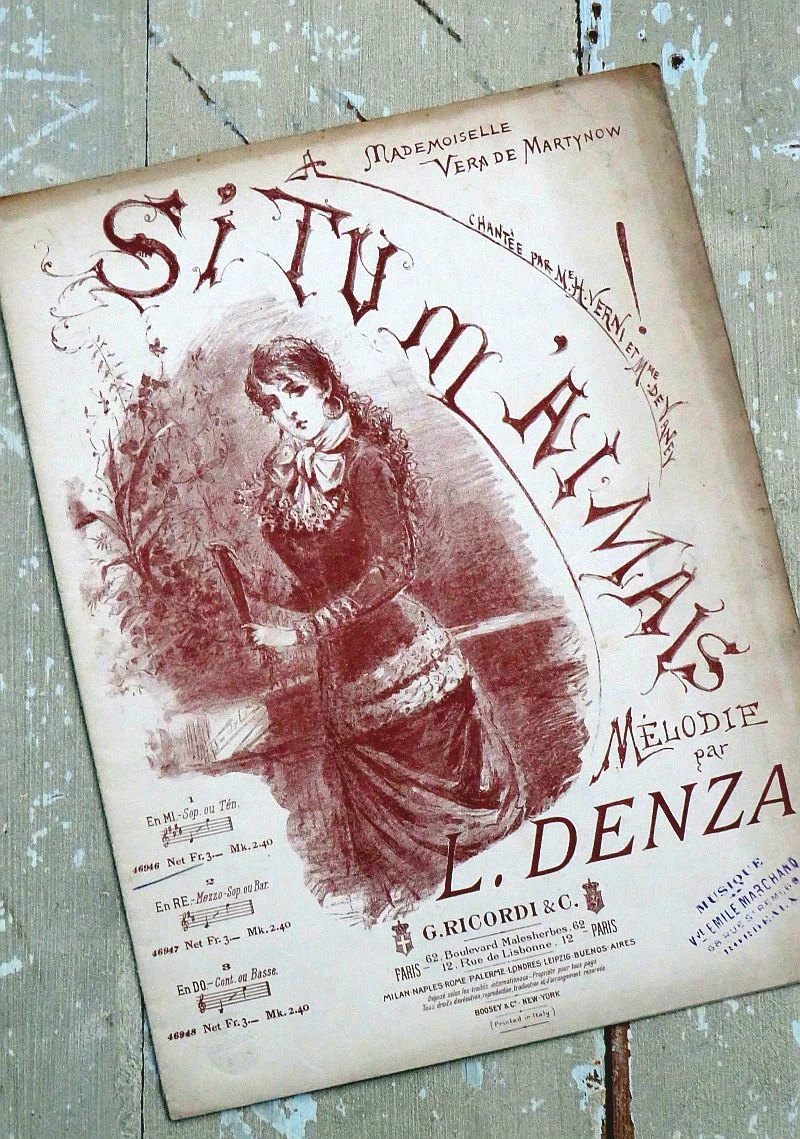 A MADEMOISELLE
VERA DE MARTYNOW
SI TU M'AIMAIS!
CHANTÉE PAR Mr. H. VERNI ET Mme DE VANEY
MÉLODIE
par
L. DENZA
1
En MI-Sop. ou Tén.
46946 Net Fr. 3.— Mk. 2.40
2
En RE-Mezzo-Sop. ou Bar.
46947 Net Fr. 3.— Mk. 2.40
3
En DO-Cont. ou Basse.
46948 Net Fr. 3.— Mk. 2.40
G. RICORDI & C.
PARIS – 62, Boulevard Malesherbes, 62 – PARIS
12, Rue de Lisbonne, 12
MILAN-NAPLES-ROME-PALERME-LONDRES-LEIPZIG-BUENOS-AIRES
Déposé selon les traités internationaux-Propriété pour tous pays
Tous droits d'exécution, reproduction, traduction et d'arrangement réservés
BOOSEY & Co. - NEW-YORK
(Printed in Italy)
MUSIQUE
Vve EMILE MARCHAND
68 RUE STE REMI, 68
BORDEAUX